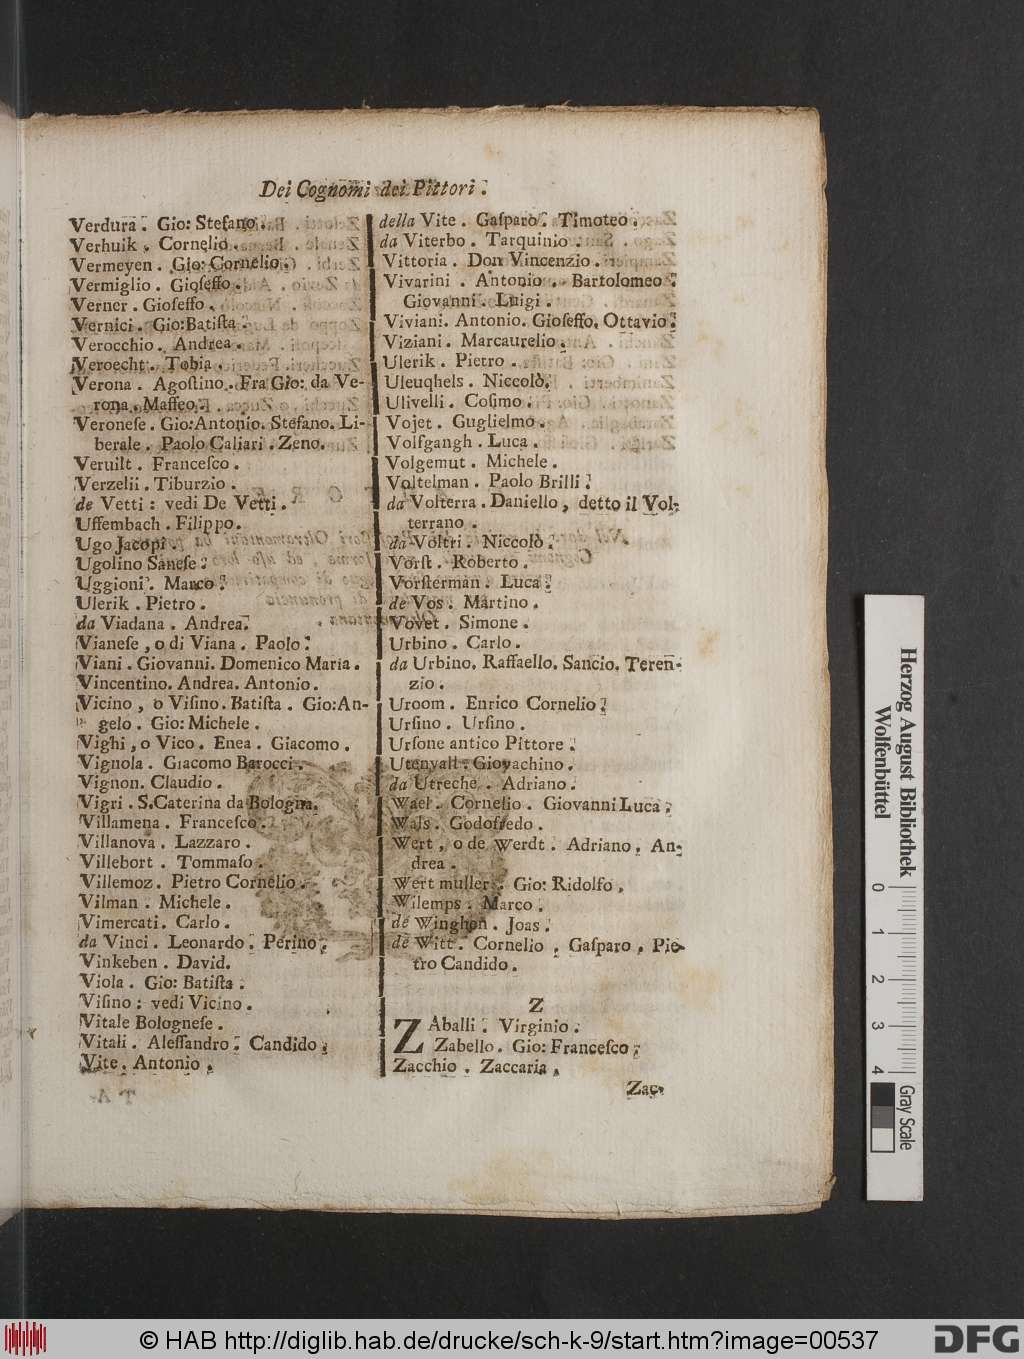 Dei Cognomi dei Pittori.
Verdura. Gio: Stefano.
Verhuik. Cornelio.
Vermeyen. Gio: Cornelio.
Vermiglio. Gioſeffo.
Verner. Gioſeffo.
Vernici. Gio:Batiſta.
Verocchio. Andrea.
Veroecht. Tobia.
Verona. Agoſtino. Fra Gio: da Ve-
rona. Maffeo.
Veroneſe. Gio:Antonio. Stefano. Li-
berale. Paolo Caliari. Zeno.
Veruilt. Franceſco.
Verzelii. Tiburzio.
de Vetti: vedi De Vetti.
Uffembach. Filippo.
Ugo Jacopi.
Ugolino Saneſe.
Uggioni. Marco.
Ulerik. Pietro.
da Viadana. Andrea.
Vianeſe, o di Viana. Paolo.
Viani. Giovanni. Domenico Maria.
Vincentino. Andrea. Antonio.
Vicino, o Viſino. Batiſta. Gio:An-
gelo. Gio: Michele.
Vighi, o Vico. Enea. Giacomo.
Vignola. Giacomo Barocci.
Vignon. Claudio.
Vigri. S.Caterina da Bologna.
Villamena. Franceſco.
Villanova. Lazzaro.
Villebort. Tommaſo.
Villemoz. Pietro Cornelio.
Vilman. Michele.
Vimercati. Carlo.
da Vinci. Leonardo. Perino.
Vinkeben. David.
Viola. Gio: Batiſta.
Viſino: vedi Vicino.
Vitale Bologneſe.
Vitali. Aleſſandro. Candido.
Vite. Antonio.
della Vite. Gaſparo. Timoteo.
da Viterbo. Tarquinio.
Vittoria. Don Vincenzio.
Vivarini. Antonio. Bartolomeo.
Giovanni. Luigi.
Viviani. Antonio. Gioſeffo. Ottavio.
Viziani. Marcaurelio.
Ulerik. Pietro.
Uleuqhels. Niccolò.
Ulivelli. Coſimo.
Vojet. Guglielmo.
Volfgangh. Luca.
Volgemut. Michele.
Voltelman. Paolo Brilli.
da Volterra. Daniello, detto il Vol-
terrano.
da Voltri. Niccolò.
Vorſt. Roberto.
Vorſterman. Luca.
de Vos. Martino.
Vovet. Simone.
Urbino. Carlo.
da Urbino. Raffaello. Sancio. Teren-
zio.
Uroom. Enrico Cornelio.
Urſino. Urſino.
Urſone antico Pittore.
Utenvall. Giovachino.
da Utreche. Adriano.
Wael. Cornelio. Giovanni Luca.
Wals. Godoffedo.
Wert, o de Werdt. Adriano. An-
drea.
Wert muller. Gio: Ridolfo.
Wilemps. Marco.
de Winghen. Joas.
de Witt. Cornelio. Gaſparo. Pie-
tro Candido.
Z
ZAballi. Virginio.
Zabello. Gio: Franceſco.
Zacchio. Zaccaria.
Zac-
Herzog August Bibliothek
Wolfenbüttel
0 1 2 3 4
Gray Scale
© HAB http://diglib.hab.de/drucke/sch-k-9/start.htm?image=00537
DFG